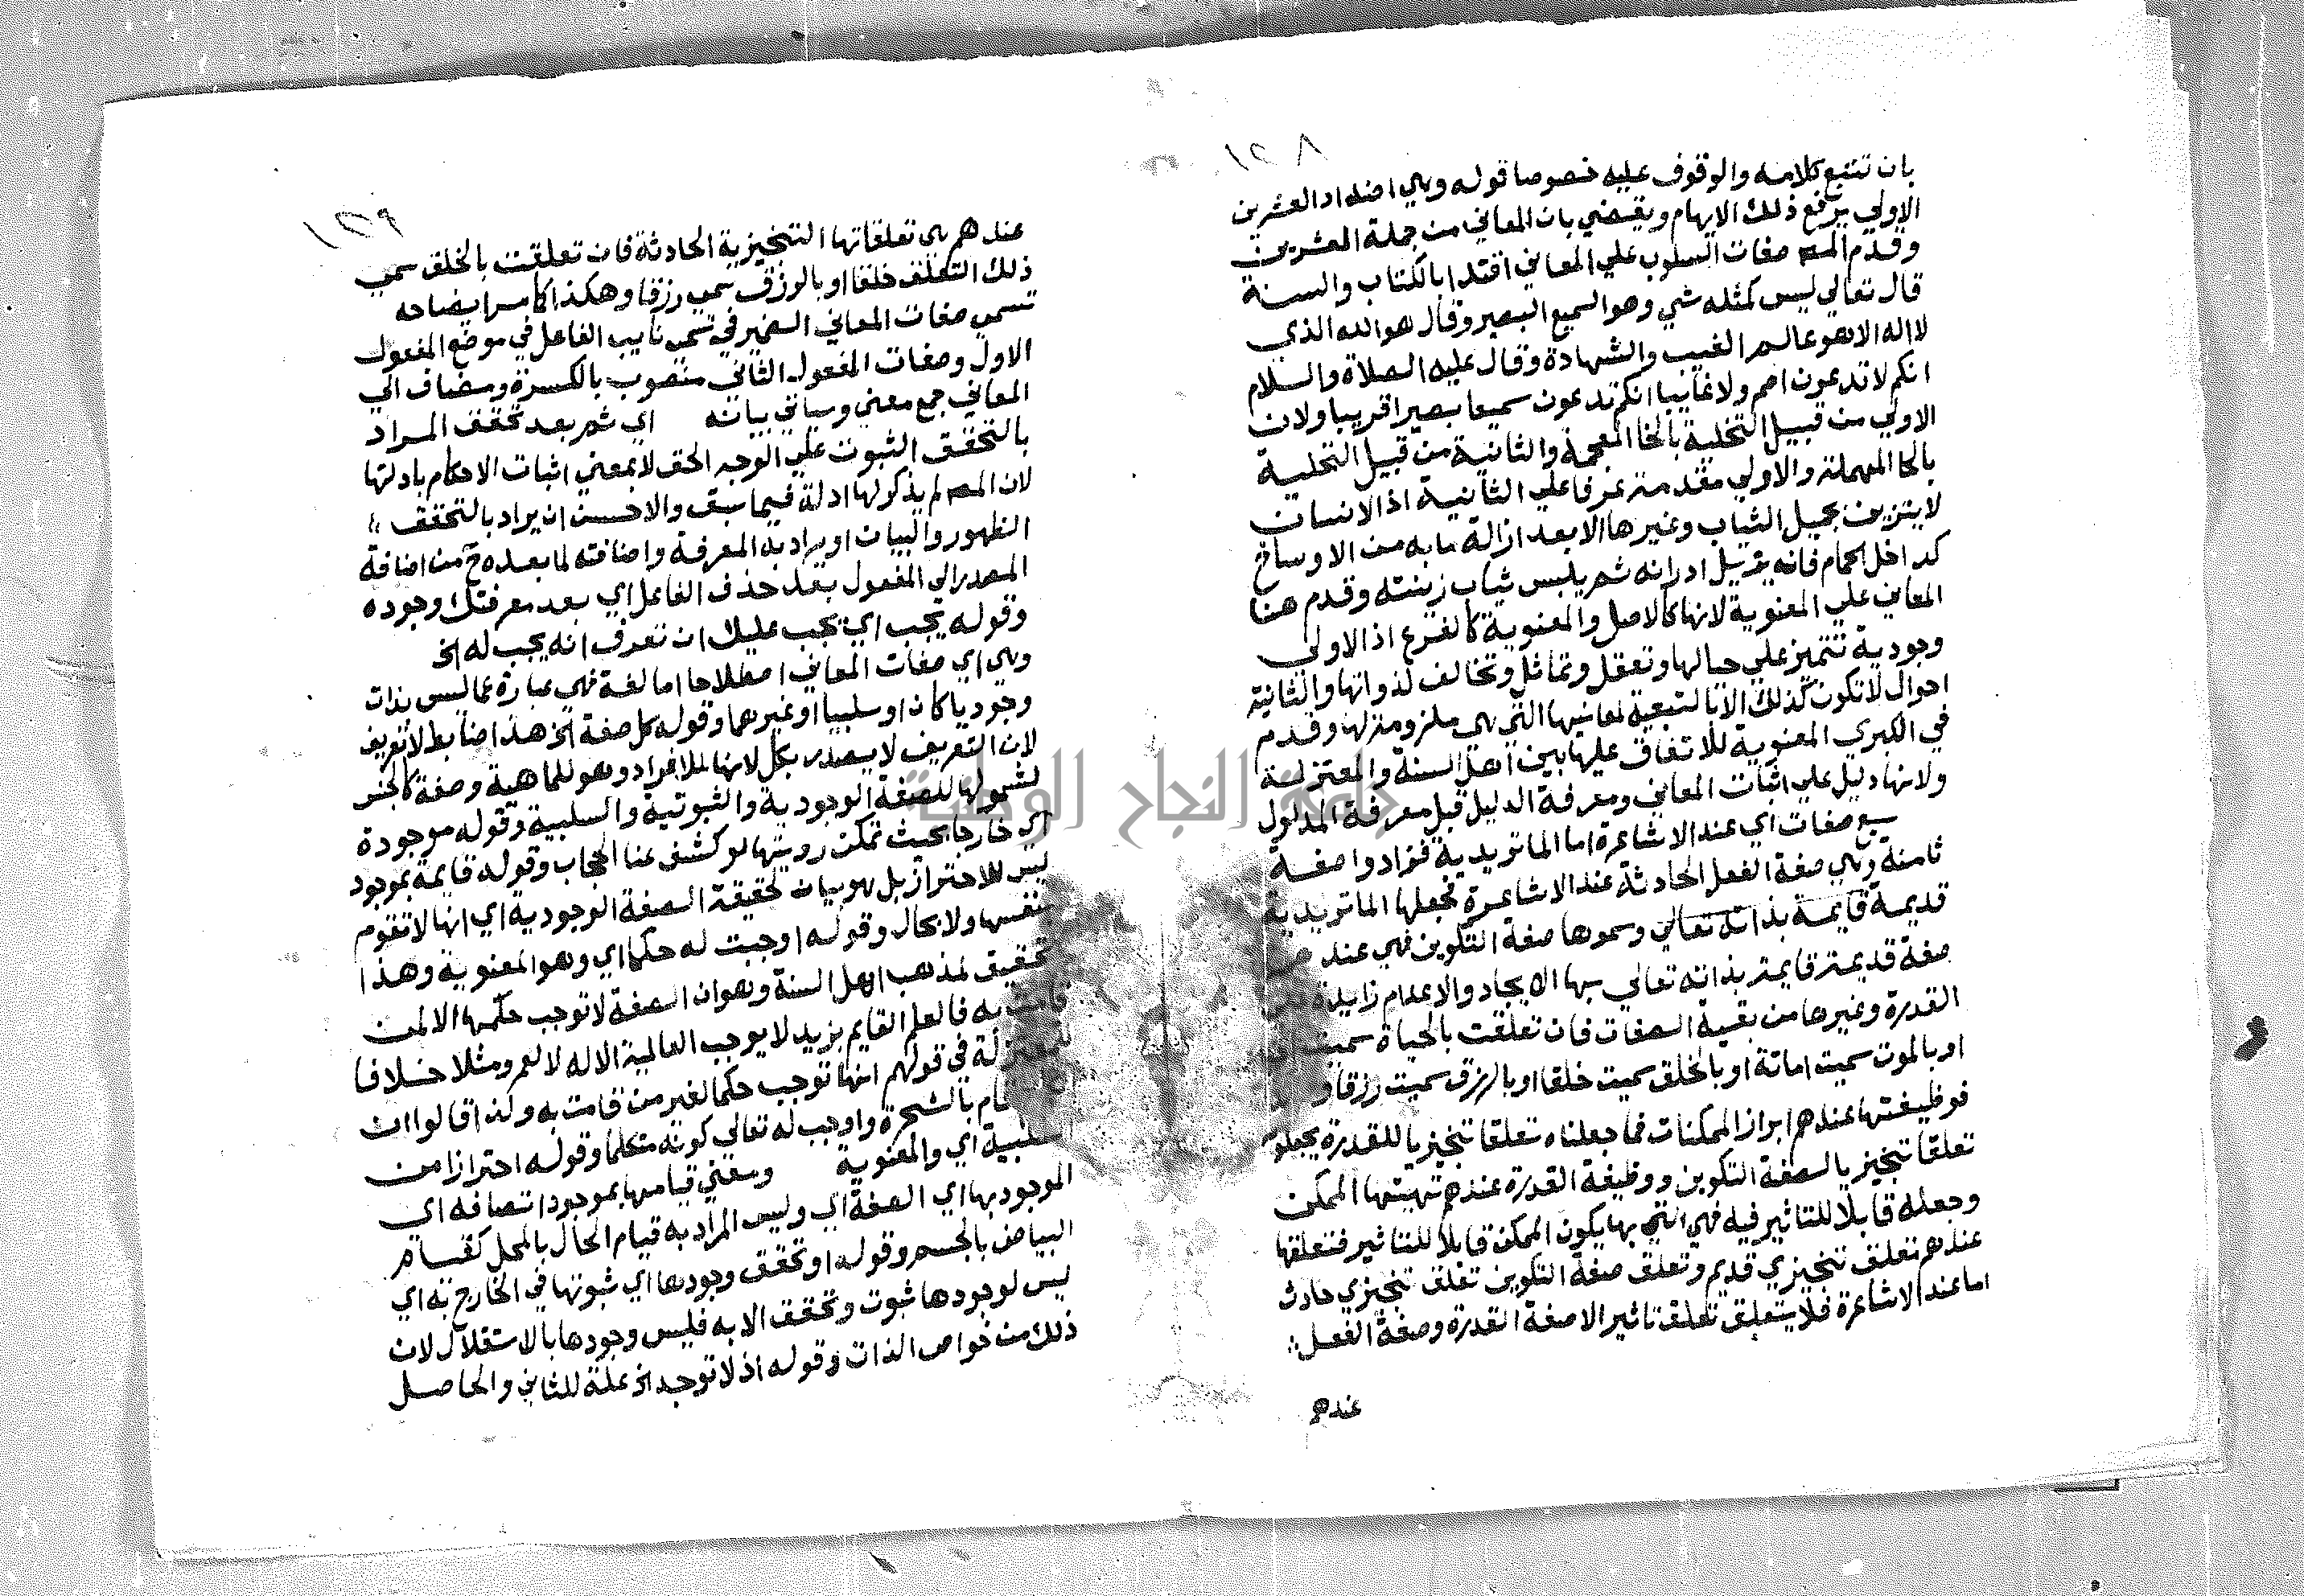 ١٢٨
بان تتبع كلامه والوقوف عليه خصوصا قوله وهي اضداد العشرين
الاولي يرفع ذلك الايهام ويقضي بان المعاني من جملة العشرين
وقدم المصـ صفات السلوب علي المعاني اقتدا بالكتاب والسنة
قال تعالي ليس كمثله شي وهو السميع البصير وقال هو الله الذي
لا اله الا هو عالم الغيب والشهادة وقال عليه الصلاة والسلام
انكم لا تدعون اصم ولا غايبا انكم تدعون سميعا بصيرا قريبا ولان
الاولي من قبيل التخلية بالخا المعجمة والثانية من قبيل التحلية
بالحا المهملة والاولي مقدمة عرفا علي الثانية اذ الانسان
لا يتزين بجميل الثياب وغيرها الا بعد ازالة ما به من الاوساخ
كداخل الحمام فانه يزيل ادرانه ثم يلبس ثياب زينته وقدم هنا
المعاني علي المعنوية لانها كالاصل والمعنوية كالفرع اذ الاولي
وجودية تتميز علي حيالها وتعقل وتماثل وتخالف لذواتها والثانية
احوال لا تكون كذلك الا بالتبعية لمعانيها التي هي ملزومة لها وقدم
في الكبري المعنوية للاتفاق عليها بين اهل السنة والمعتزلة
ولانها دليل علي اثبات المعاني ومعرفة الدليل قبل معرفة المدلول
سبع صفات اي عند الاشاعرة اما الماتريدية فزادوا صفة
ثامنة وهي صفة الفعل الحادثة عند الاشاعرة فجعلها الماتريدية
قديمة قايمة بذاته تعالي وسموها صفة التكوين فهي عند
صفة قديمة قايمة بذاته تعالي بها الايجاد والاعدام زايدة
القدرة وغيرها من بقية الصفات فان تعلقت بالحياة سميت
او بالموت سميت اماتة او بالخلق سميت خلقا او بالرزق سميت رزقا
فوظيفتها عندهم ابراز الممكنات فما جعلناه تعلقا تنجيزيا للقدرة يجعلو
تعلقا تنجيزيا لصفة التكوين ووظيفة القدرة عندهم تهييتها الممكن
وجعله قابلا للتاثير فيه فهي التي بها يكون الممكن قابلا للتاثير فتعلقها
عندهم تعلق تنجيزي قديم وتعلق صفة التكوين تعلق تنجيزي حادث
اما عند الاشاعرة فلا يتعلق تعلق تاثير الا صفة القدرة وصفة الفعل
عندهم
١٢٩
عندهم هي تعلقاتها التنجيزية الحادثة فان تعلقت بالخلق سمي
ذلك التعلق خلقا او بالرزق سمي رزقا وهكذا كما مر ايضاحه
تسمي صفات المعاني الضمير في تسمي نايب الفاعل في موضع المفعول
الاول وصفات المفعول الثاني منصوب بالكسرة ومضاف الي
المعاني جمع معني وسياتي بيانه اي ثم بعد تحقق المراد
بالتحقق الثبوت علي الوجه الحق لا بمعني اثبات الاحكام بادلتها
لان المصـ لم يذكر لها ادلة فيما سبق والاحسن ان يراد بالتحقق
الظهور والبيان او يراد به المعرفة واضافته لما بعده ح من اضافة
المصدر الي المفعول بعد حذف الفاعل اي بعد معرفتك وجوده
وقوله يجب اي يجب عليك ان تعرف انه يجب له الخ
وهي اي صفات المعاني اصطلاحا اما لغة فهي عبارة عما ليس بذات
وجوديا كان او سلبيا او غيرهما وقوله كل صفة الخ هذا ضابط لا تعريف
لان التعريف لا يصدر بكل لانها للافراد وهو للماهية وصفة كالجنس
لشمولها للصفة الوجودية والثبوتية والسلبية وقوله موجودة
اي خارجا بحيث تمكن رويتها لو كشف عنا الحجاب وقوله قايمة بموجود
ليس للاحتراز بل هو بيان لحقيقة الصفة الوجودية اي انها لا تقوم
بنفسها ولا بحال وقوله اوجبت له حكما اي وهو المعنوية وهذا
تحقيق لمذهب اهل السنة وهو ان الصفة لا توجب حكمها الا لمن
قامت به فالعلم القايم بزيد لا يوجب العالمية الا له لا لعمرو مثلا خلافا
للمعتزلة في قولهم انها توجب حكما لغير من قامت به ولذا قالوا ان
قام بالشجرة واوجب له تعالي كونه متكلما وقوله احترازا من
السلبية اي والمعنوية ومعني قيامها بموجود اتصافه اي
الموجود بها اي الصفة اي وليس المراد به قيام الحال بالمحل كقيام
البياض بالجسم وقوله او تحقق وجودها اي ثبوتها في الخارج به اي
ليس لوجودها ثبوت وتحقق الا به فليس وجودها بالاستقلال لان
ذلك من خواص الذات وقوله اذ لا توجد الخ علة للثاني والحاصل
جامعة النجاح الوطنية